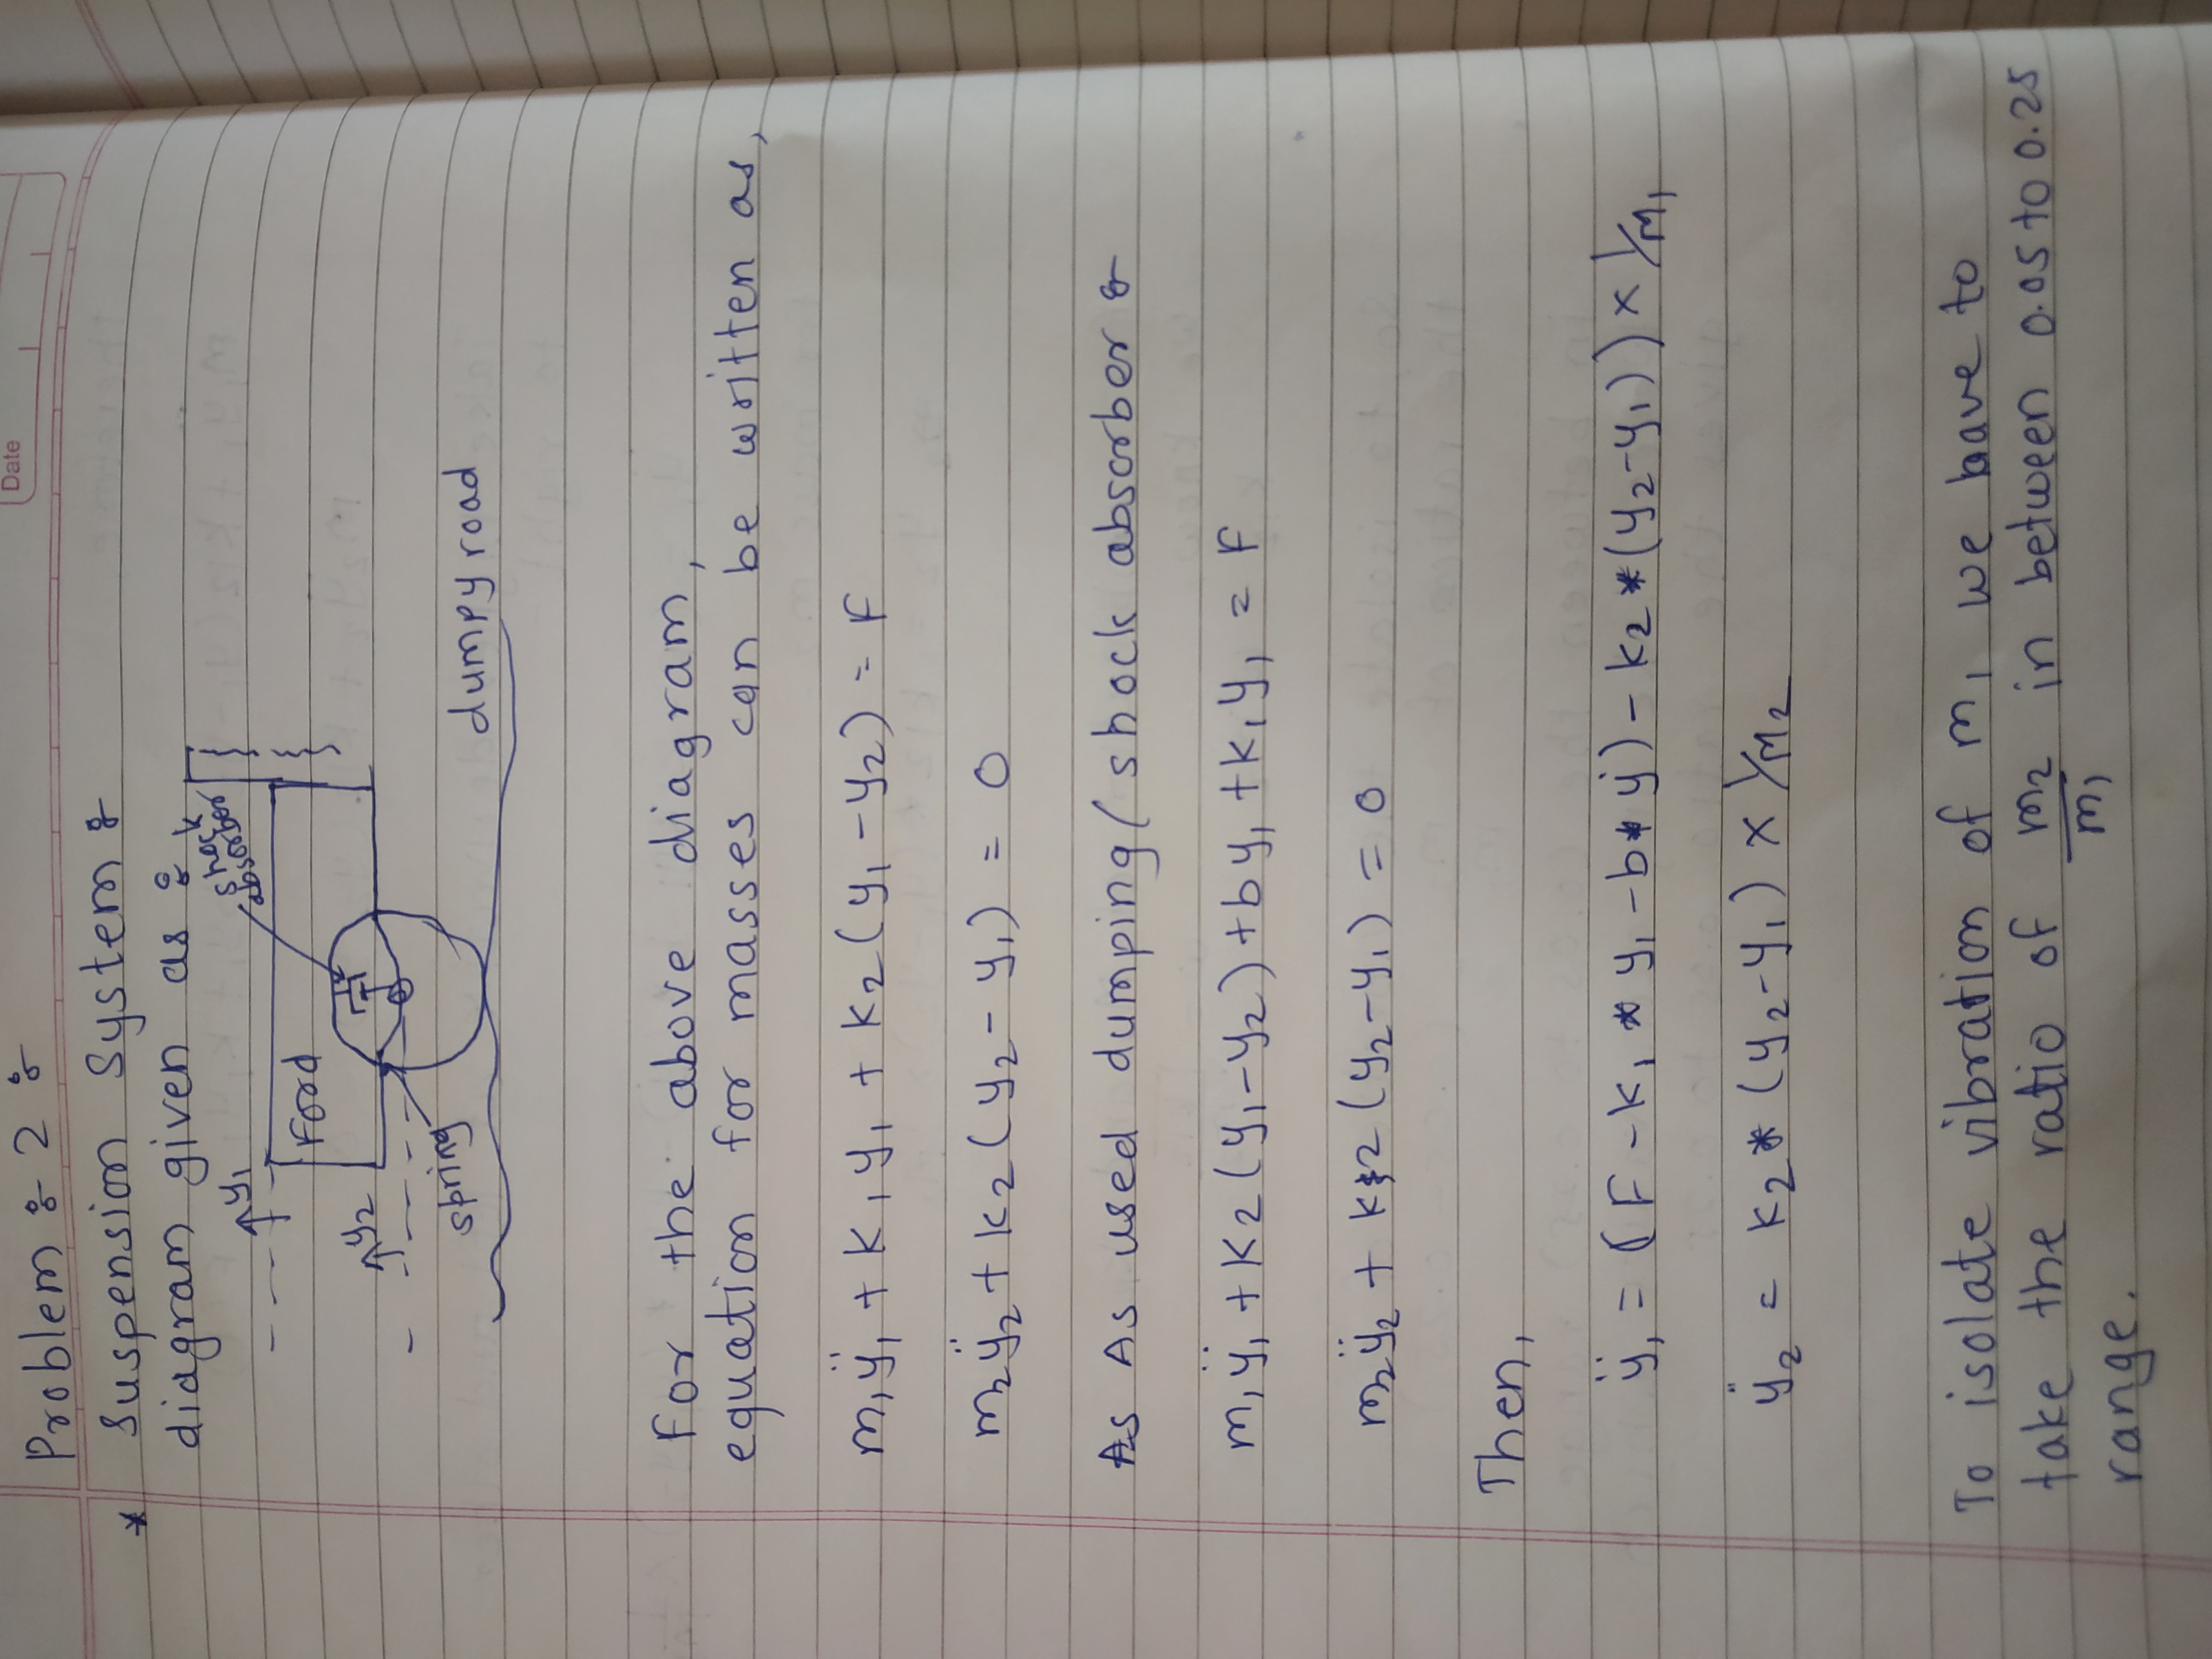 Date
Problem : 2 :
* Suspension System :
diagram given as :
shock
absorber
y₁
Ford
y₂
spring
dumpy road
For the above diagram,
equation for masses can be written as,
m₁ÿ₁ + K₁y₁ + K₂(y₁ - y₂) = F
m₂ÿ₂ + K₂(y₂ - y₁) = 0
As As used dumping / shock absorber :
m₁ÿ₁ + K₂(y₁ - y₂) + by₁ + k₁y₁ = F
m₂ÿ₂ + k2(y₂ - y₁) = 0
Then,
ÿ₁ = (F - k₁ * y₁ - b * ẏ) - k₂ * (y₂ - y₁)) × 1/m₁
ÿ₂ = K₂ * (y₂ - y₁) × 1/m₂
To isolate vibration of m₁ we have to
take the ratio of m₂/m₁ in between 0.05 to 0.25
range.